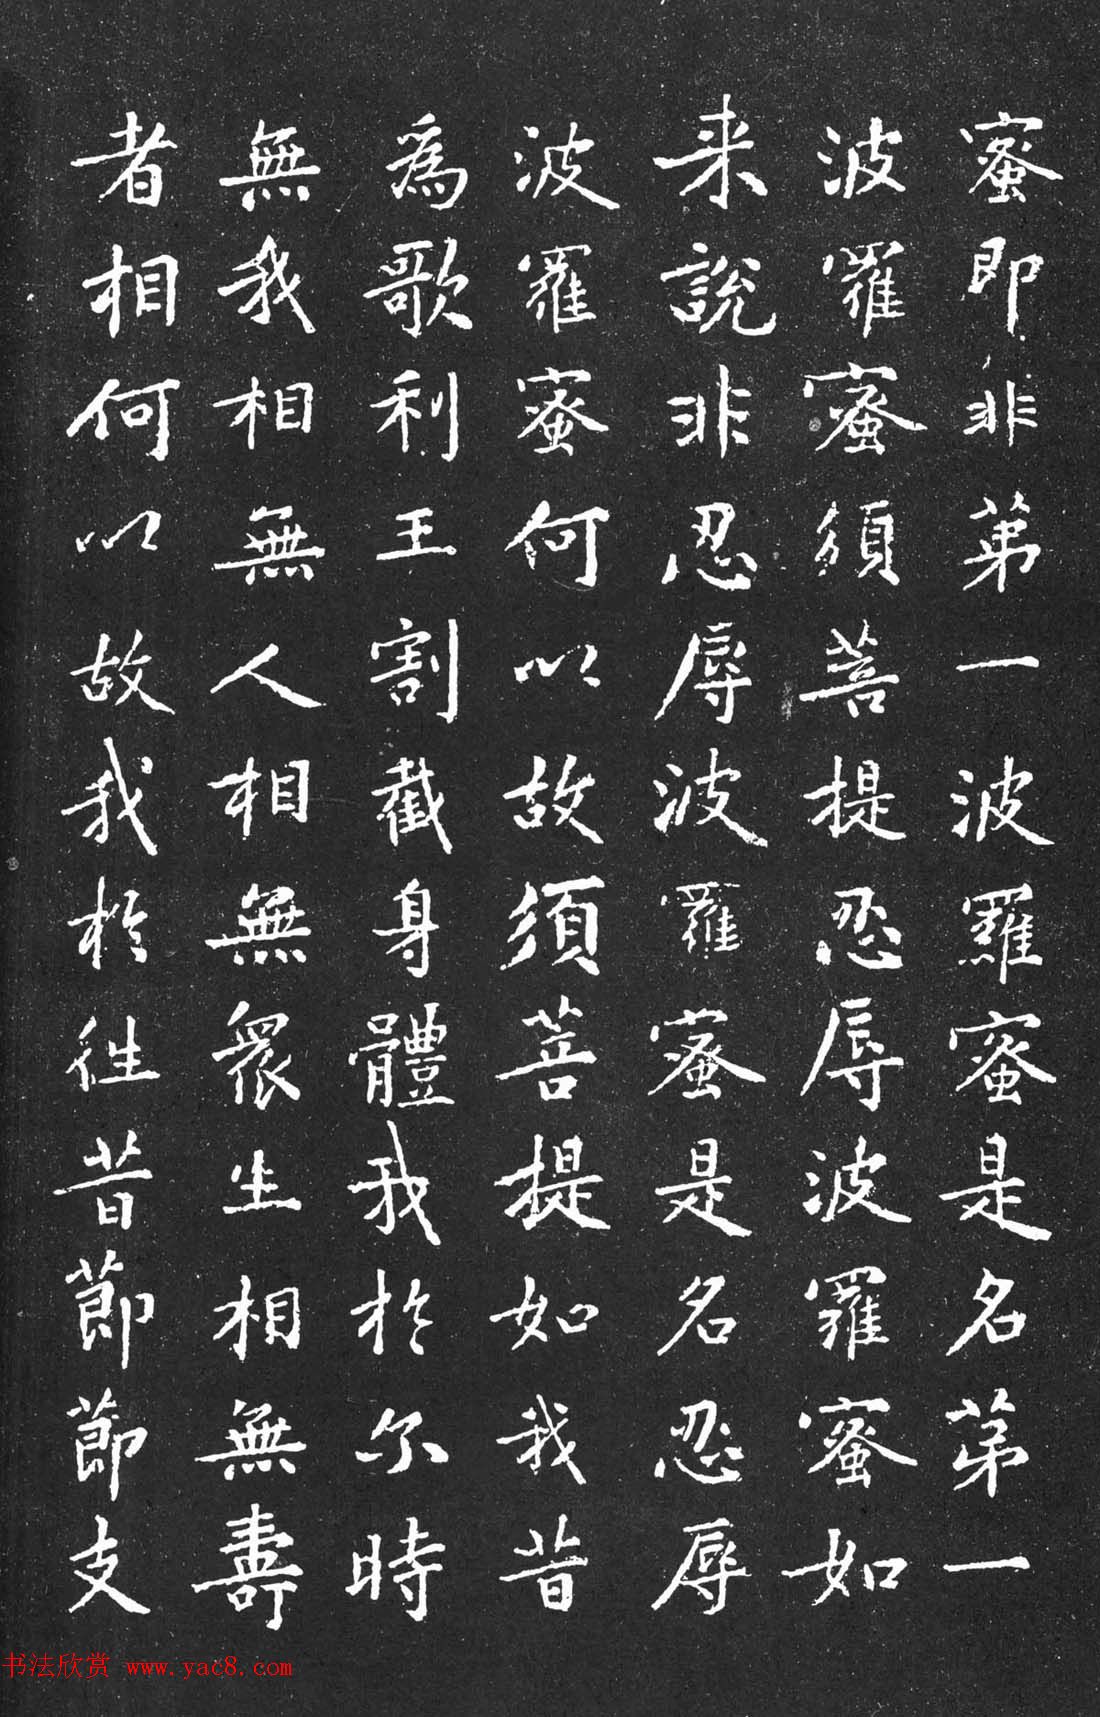 蜜即非第一波羅蜜是名第一
波羅蜜須菩提忍辱波羅蜜如
来說非忍辱波羅蜜是名忍辱
波羅蜜何以故須菩提如我昔
為歌利王割截身體我於尒時
無我相無人相無衆生相無壽
者相何以故我於往昔節節支
书法欣赏 www.yac8.com